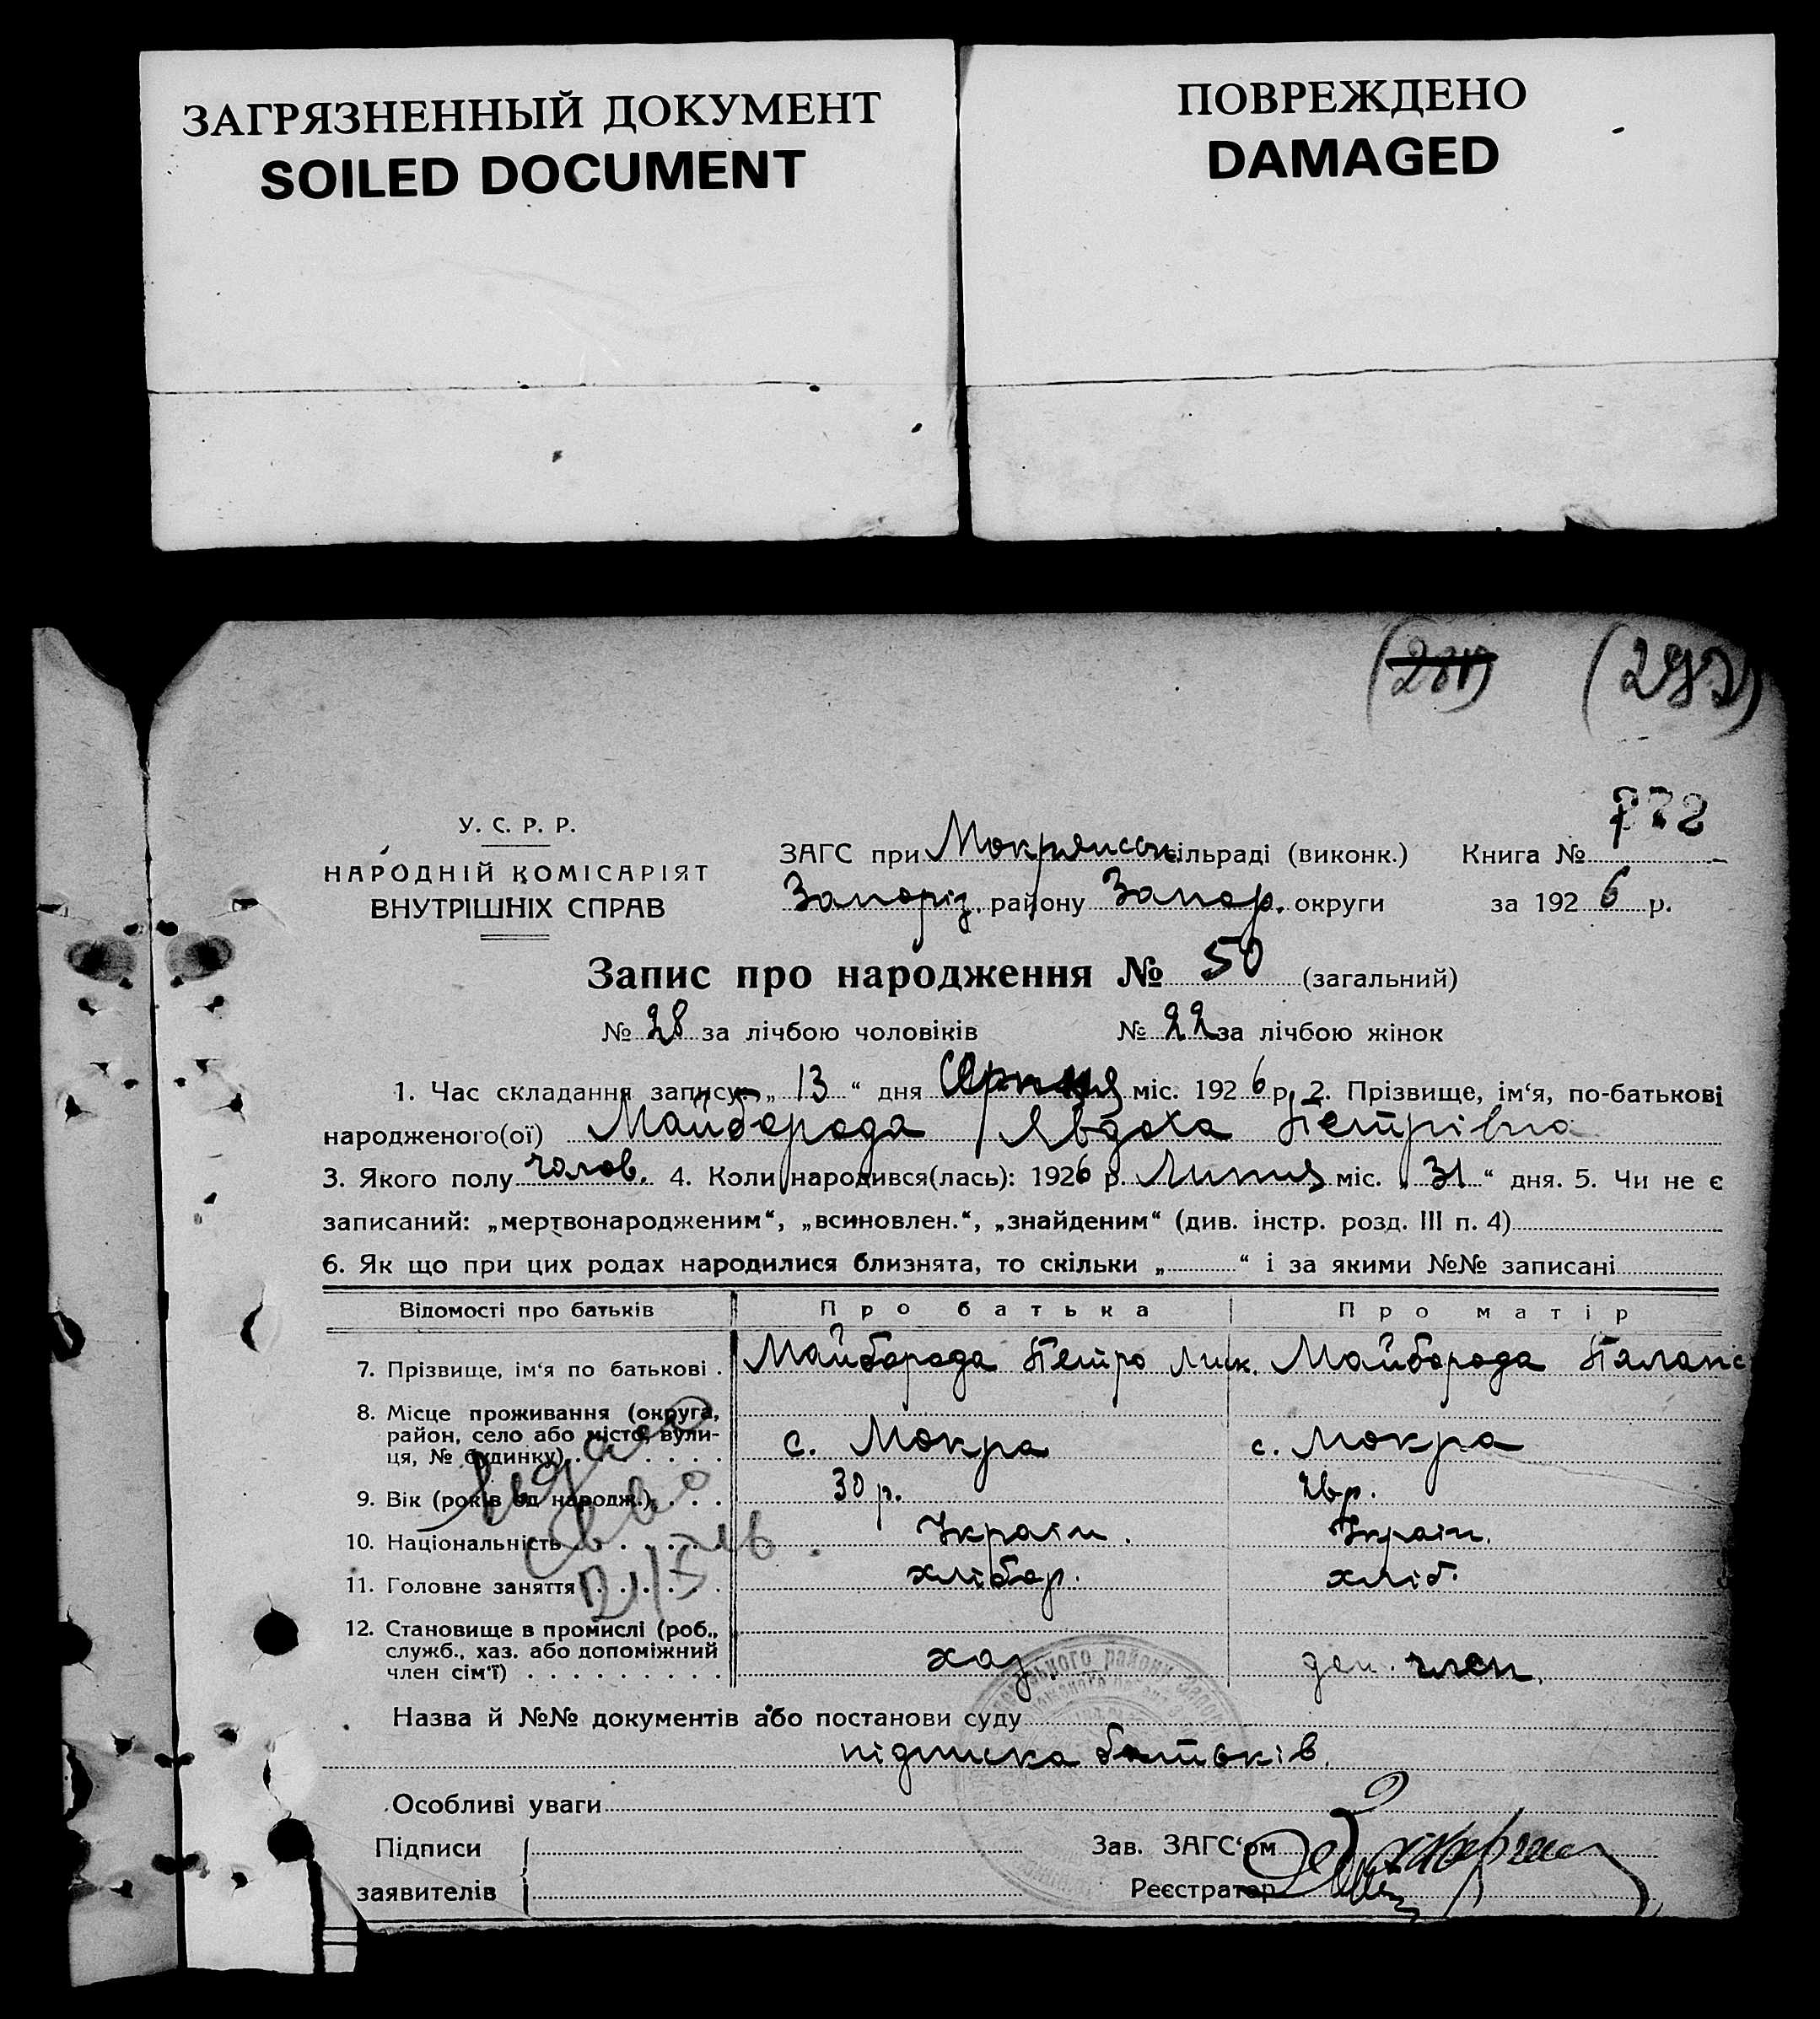 ЗАГРЯЗНЕННЫЙ ДОКУМЕНТ
SOILED DOCUMENT
ПОВРЕЖДЕНО
DAMAGED
У. С. Р. Р.
НАРОДНІЙ КОМІСАРІЯТ
ВНУТРІШНІХ СПРАВ
ЗАГС при Мокрянськ сільраді (виконк.) Книга №
Запоріз. району Запор. округи за 1926 р.
Запис про народження № 50 (загальний)
№ 28 за лічбою чоловіків № 22 за лічбою жінок
1. Час складання запису: „13“ дня Серпня міс. 1926 р. 2. Прізвище, ім‘я, по-батькові
народженого(ої) Майборода Явдоха Петрівна
3. Якого полу чолов. 4. Коли народився(лась): 1926 р. Липня міс. „31“ дня. 5. Чи не є
записаний: „мертвонародженим“, „всиновлен.“, „знайденим“ (див. інстр. розд. III п. 4)
6. Як що при цих родах народилися близнята, то скільки „ “ і за якими №№ записані
Відомості про батьків Про батька Про матір
7. Прізвище, ім‘я по батькові . Майборода Петро Мик. Майборода Палаж
8. Місце проживання (округа,
район, село або місто, вули-
ця, № будинку) . . . . . . с. Мокра с. Мокра
9. Вік (років од народж.) . . . 30 р. 26 р.
10. Національність . . . . . Україн. Україн.
11. Головне заняття . . . . . хлібор. хліб.
12. Становище в промислі (роб.,
служб., хаз. або допоміжний
член сім‘ї) . . . . . . . . . хаз. член.
Назва й №№ документів або постанови суду
підписка батьків.
Особливі уваги
Підписи
заявителів
Зав. ЗАГС‘ом
Реєстратор